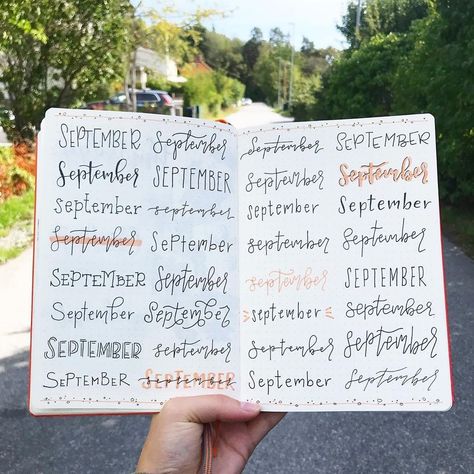 SEPTEMBER September
September SEPTEMBER
September september
September SePtember
SEPTEMBER September
September September
SEPTEMBER september
SEPTEMBER SEPTEMBER
september SEPTEMBER
September September
SEPTEMBER September
September September
september SEPTEMBER
september September
September September
September September